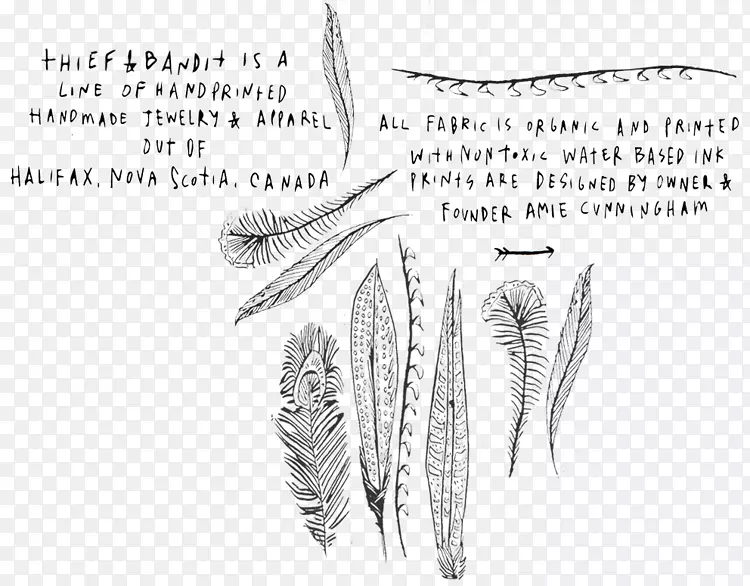 THIEF & BANDIT IS A
LINE OF HANDPRINTED
HANDMADE JEWELRY & APPAREL
OUT OF
HALIFAX, NOVA SCOTIA, CANADA
ALL FABRIC IS ORGANIC AND PRINTED
WITH NONTOXIC WATER BASED INK
PRINTS ARE DESIGNED BY OWNER &
FOUNDER AMIE CUNNINGHAM